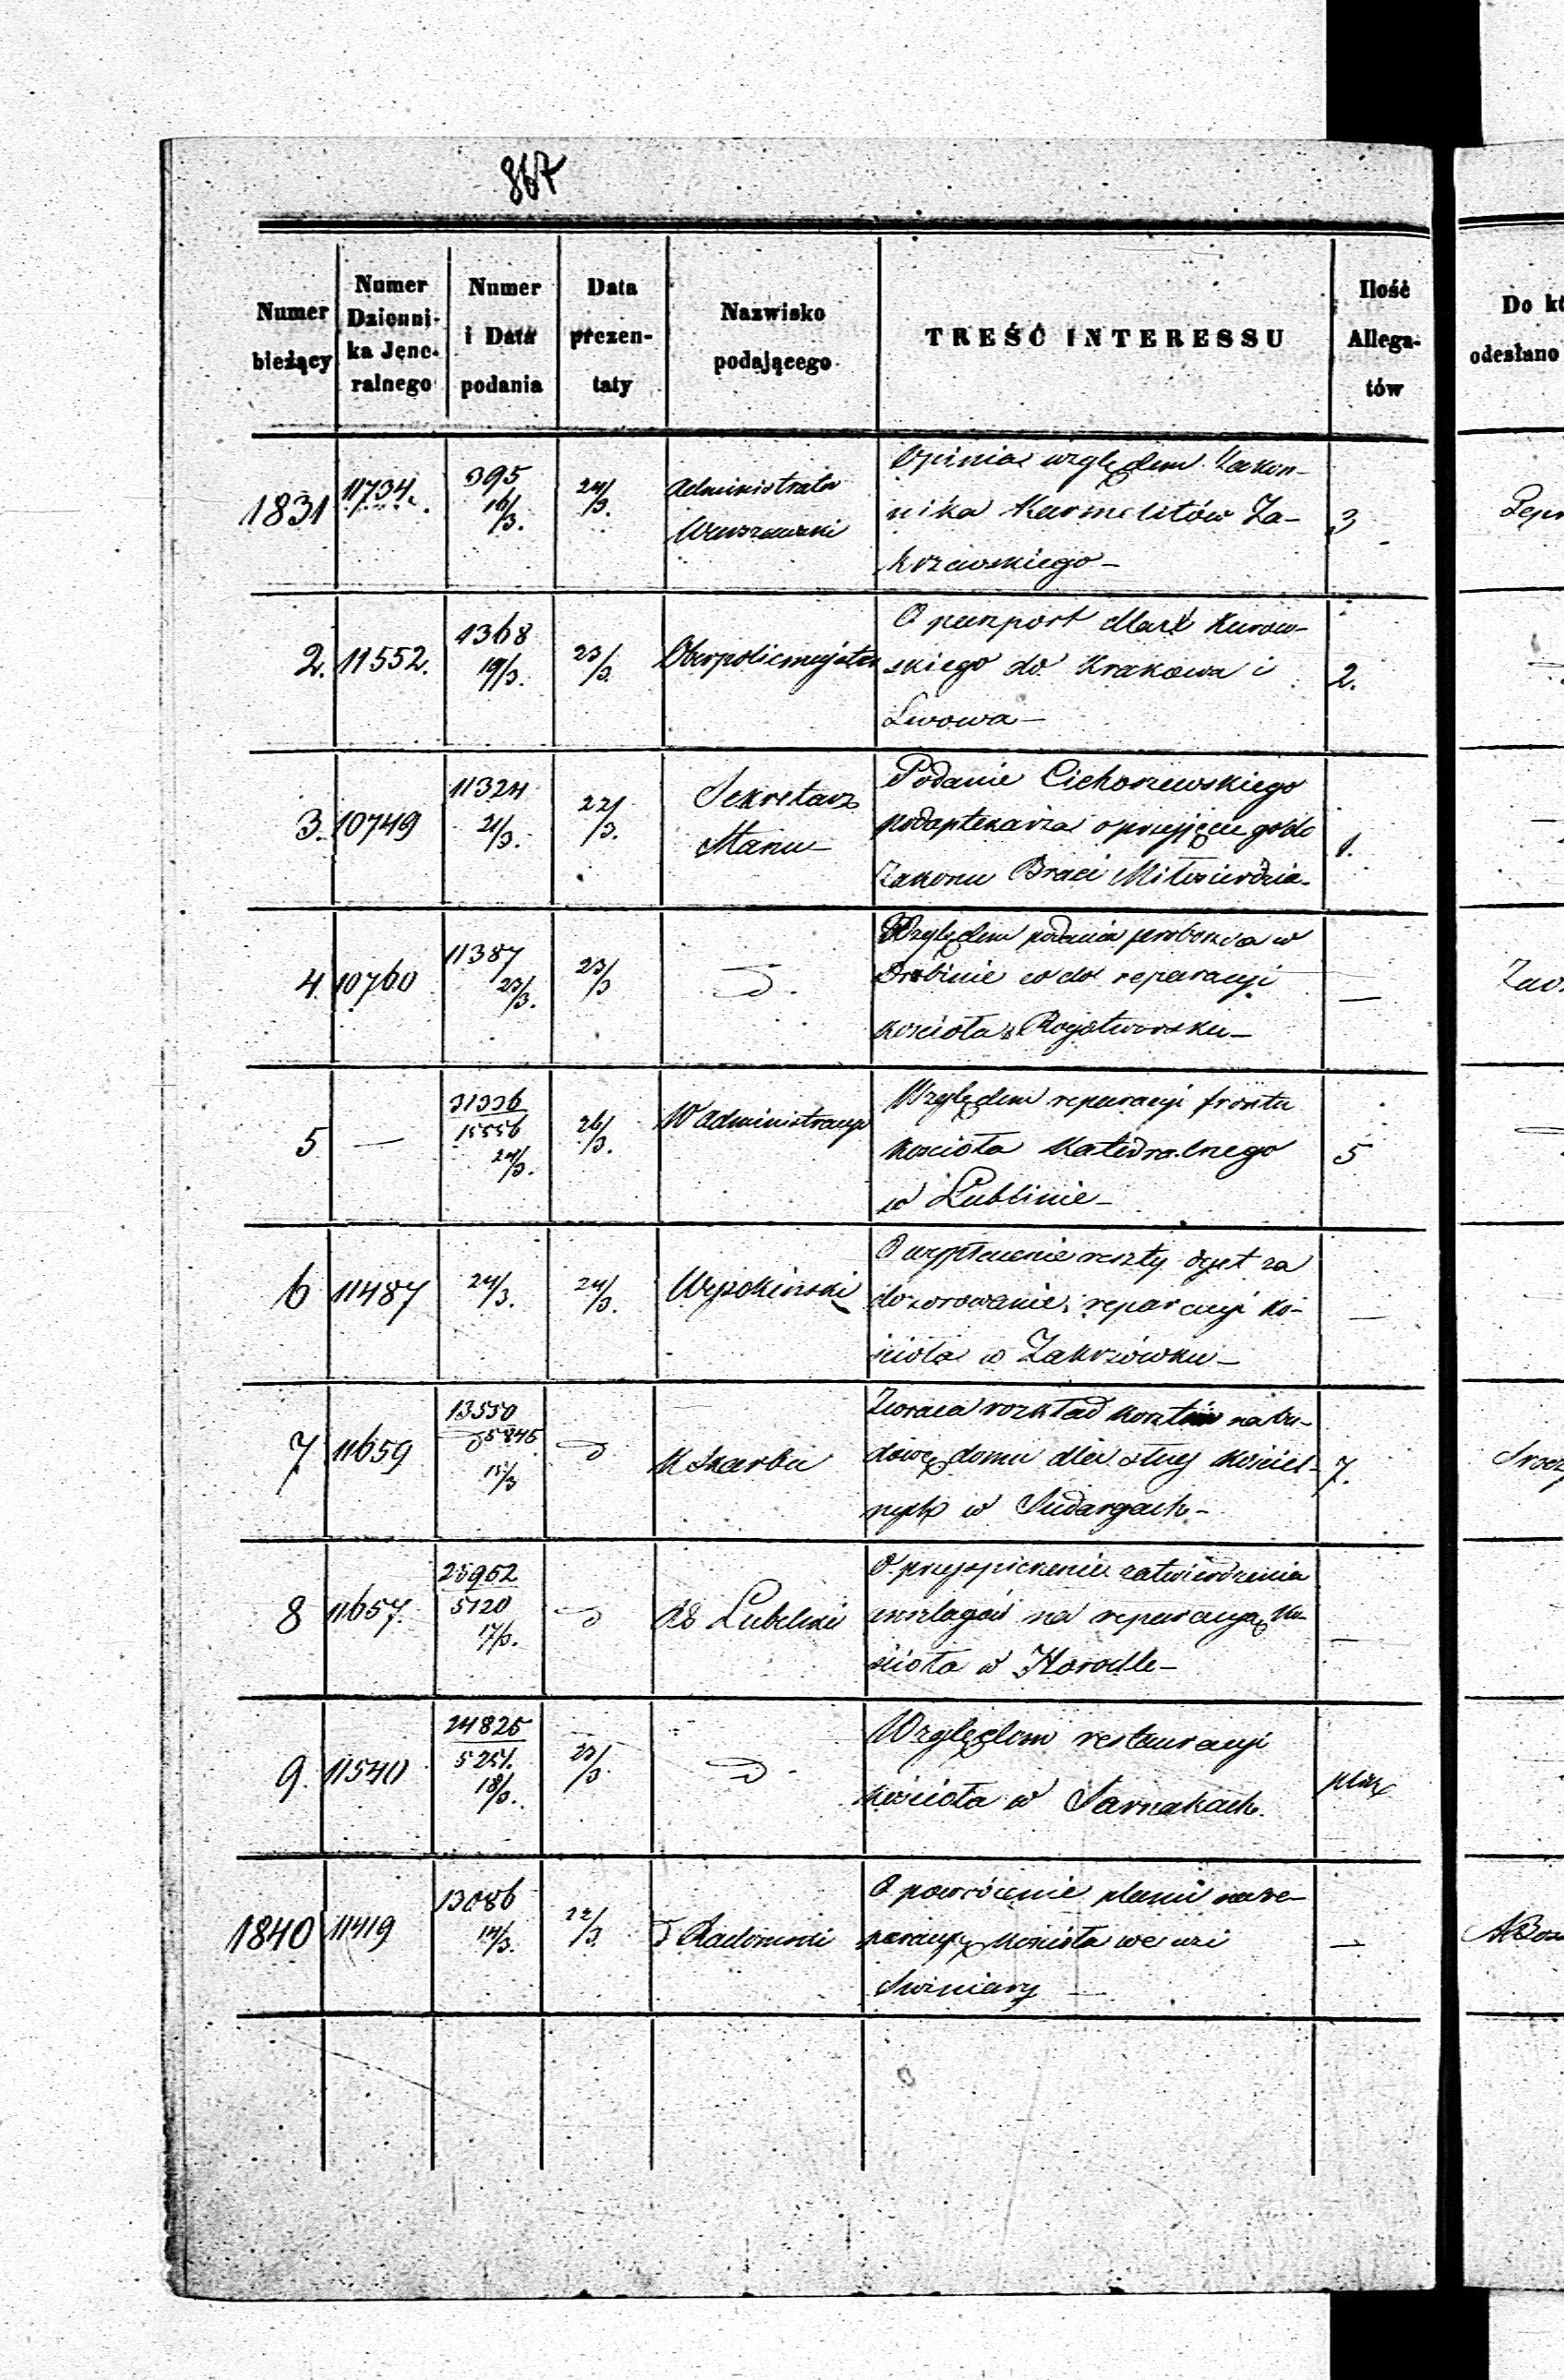 867
Numer bieżący
Numer Dzienni-ka Jene-ralnego
Numer i Data podania
Data prezen-taty
Nazwisko podającego
TREŚĆ INTERESSU
Ilość Allega-tów
Do
odesłano
1831 11734. 395 16/3. 24/3. Administrator Warszawski 3
Opinia względem Zakon-
nika Karmelitów Za-
krzewskiego-
2. 11552. 1368 19/3. 23/3. Oberpolicmajster 2.
O paszport dla X Kurow-
skiego do Krakowa i
Lwowa-
3. 10749 11324 21/3. 22/3. Sekretarz Stanu- 1.
Podanie Cichorzewskiego
podaptekarza o przyjęcie go do
Zakonu Braci Miłosierdzia-
4. 10760 11387 23/3. 23/3 D. —
Względem podania proboszcza w
Drobinie co do reparacyi
kościoła w Rogotworsku-
5 — 31336 15556 24/3. 26/3. W Administracyi 5
Względem reparacyi frontu
kościoła Katedralnego
w Lublinie-
6 11487 24/3. 24/3. —
O wypłacenie reszty dyet za
dozorowanie reparacyi ko-
ścioła w Zakrzówku-
7 11659 13550 5845 15/3 D K Skarbu 7.
Zwraca rozkład kosztów na bu-
dowę domu dla sług kościel-
nych w Sudargach-
8 11657. 25952 5120 17/3. D RG Lubelski —
O przyspieszenie zatwierdzenia
anszlagów na reparacyą ko-
ścioła w Horodle-
9. 11540 24825 5251. 18/3. 23/3. D.
Względem restauracyi
kościoła w Sarnakach.
1840 11419 13086 14/3. 22/3. D Radomski —
O powrócenie planu na re-
paracyę kościoła we wsi
Swiniary —